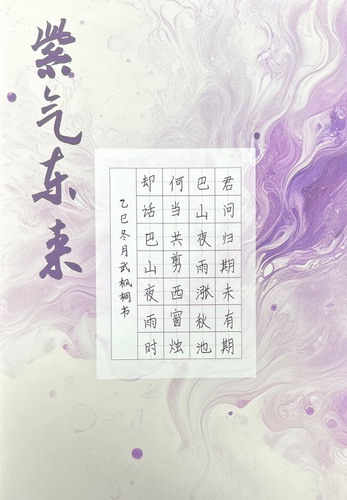 紫气东来
君问归期未有期
巴山夜雨涨秋池
何当共剪西窗烛
却话巴山夜雨时
乙巳冬月武枫桐书